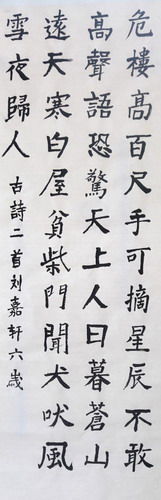 危樓高百尺手可摘星辰不敢
高聲語恐驚天上人日暮蒼山
遠天寒白屋貧柴門聞犬吠風
雪夜歸人 古詩二首刘嘉轩六歲